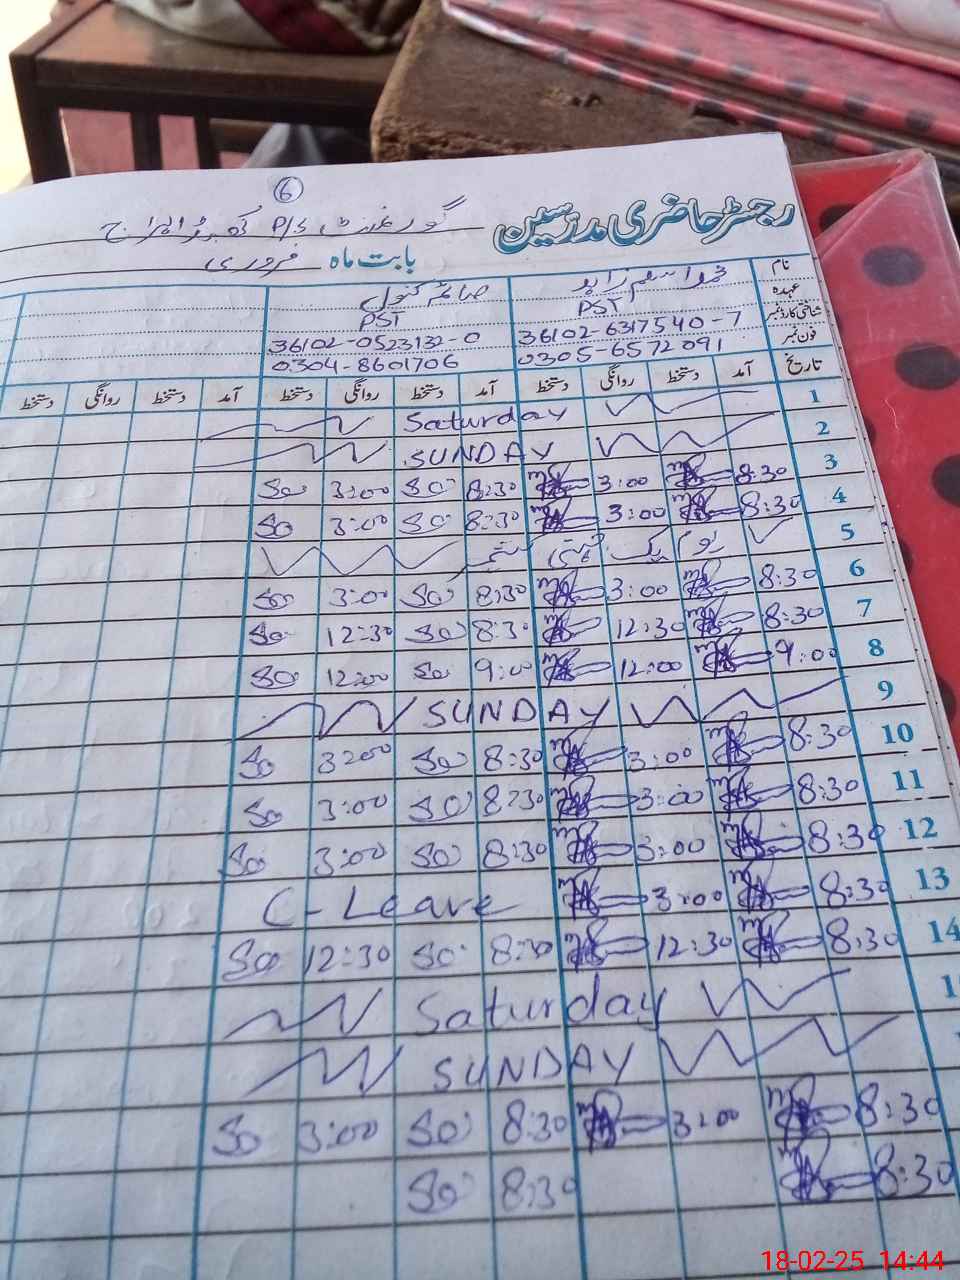 6
رجسٹر حاضری مدرسین گورنمنٹ P/S
بابت ماہ فروری
نام صائمہ کنول
عہدہ PST PST
شناختی کارڈ نمبر 36102-6317540-7 36102-0523132-0
فون نمبر 0305-6572091 0304-8601706
تاریخ آمد دستخط روانگی دستخط آمد دستخط روانگی دستخط آمد دستخط روانگی دستخط
1 Saturday
2 SUNDAY
3 8:30 3:00 8:30 So 3:00 So
4 8:30 3:00 8:30 So 3:00 So
5 یوم یک جہتی کشمیر
6 8:30 3:00 8:30 So 3:00 So
7 8:30 12:30 8:30 So 12:30 So
8 9:00 12:00 9:00 So 12:00 So
9 SUNDAY
10 8:30 3:00 8:30 So 3:00 So
11 8:30 3:00 8:30 So 3:00 So
12 8:30 3:00 8:30 So 3:00 So
13 8:30 3:00 C-Leave
14 8:30 12:30 8:30 So 12:30 So
Saturday
SUNDAY
8:30 3:00 8:30 So 3:00 So
8:30 8:30 So
18-02-25 14:44